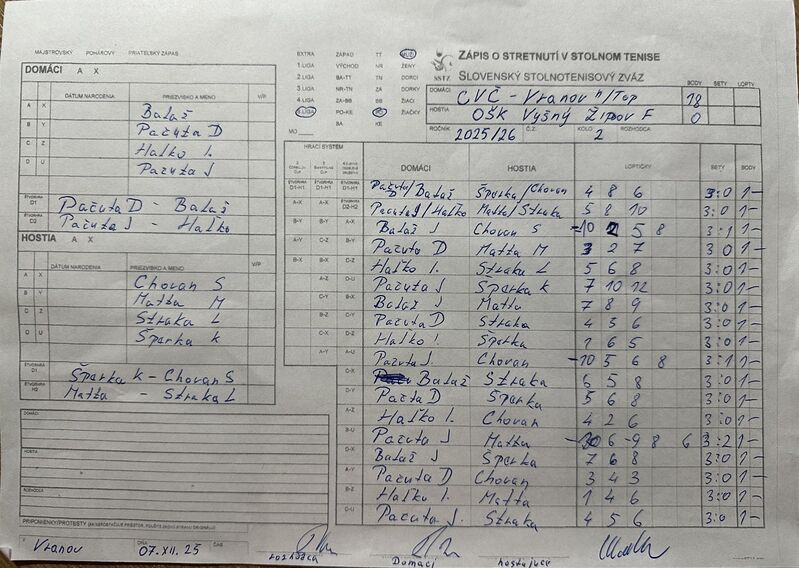 MAJSTROVSKÝ POHÁROVÝ PRIATEĽSKÝ ZÁPAS
DOMÁCI A X
DÁTUM NARODENIA PRIEZVISKO A MENO V/P
A X Balaš
B Y Pačuta D
C Z Haľko I.
D U Pačuta J
ŠTVORHRA D1 Pačuta D - Balaš
ŠTVORHRA D2 Pačuta J - Haľko
HOSTIA A X
DÁTUM NARODENIA PRIEZVISKO A MENO V/P
A X Chovan S
B Y Matta M
C Z Straka L
D U Šperka K
ŠTVORHRA Šperka K - Chovan S
ŠTVORHRA H2 Matta - Straka L
DOMÁCI
HOSTIA
ROZHODCA
PRIPOMIENKY/PROTESTY
Vranov DŇA 07.XII.25 ČAS
EXTRA ZÁPAD TT MUŽI
1 LIGA VÝCHOD NR ŽENY
2 LIGA BA-TT TN DORCI
3 LIGA NR-TN ZA DORKY
4 LIGA ZA-BB BB ŽIACI
5 LIGA PO-KE PO ŽIAČKY
BA KE
MO
ZÁPIS O STRETNUTÍ V STOLNOM TENISE
SSTZ SLOVENSKÝ STOLNOTENISOVÝ ZVÄZ
BODY SETY LOPTY
DOMÁCI CVČ - Vranov n/Top 18
HOSTIA OŠK Vyšný Žipov F 0
ROČNÍK 2025/26 Č.Z. KOLO 2 ROZHODCA
HRACÍ SYSTÉM
DOMÁCI HOSTIA LOPTIČKY SETY BODY
D1-H1 D1-H1 D1-H1 Pačuta D/Balaš Šperka/Chovan 4 8 6 3:0 1-
A-X A-X D2-H2 Pačuta J/Haľko Matta/Straka 5 8 10 3:0 1-
B-Y B-Y A-X Balaš J Chovan S -10 2 5 8 3:1 1-
A-Y C-Z B-Y Pačuta D Matta M 3 2 7 3:0 1-
B-X B-X C-Z Haľko I. Straka L 5 6 8 3:0 1-
A-Z D-U Pačuta J Šperka K 7 10 12 3:0 1-
C-Y B-X Balaš J Matta 7 8 9 3:0 1-
B-Z C-Y Pačuta D Straka 4 5 6 3:0 1-
C-X D-Z Haľko I. Šperka 1 6 5 3:0 1-
A-Y A-U Pačuta J. Chovan -10 5 6 8 3:1 1-
C-X Balaš Straka 6 5 8 3:0 1-
D-Y Pačuta D Šperka 5 6 8 3:0 1-
A-Z Haľko I. Chovan 4 2 6 3:0 1-
B-U Pačuta J Matta 6 -9 8 6 3:2 1-
D-X Balaš J Šperka 7 6 8 3:0 1-
A-Y Pačuta D Chovan 3 4 3 3:0 1-
B-Z Haľko I. Matta 1 4 6 3:0 1-
D-U Pačuta J. Straka 4 5 6 3:0 1-
rozhodca Domáci hosťujúce